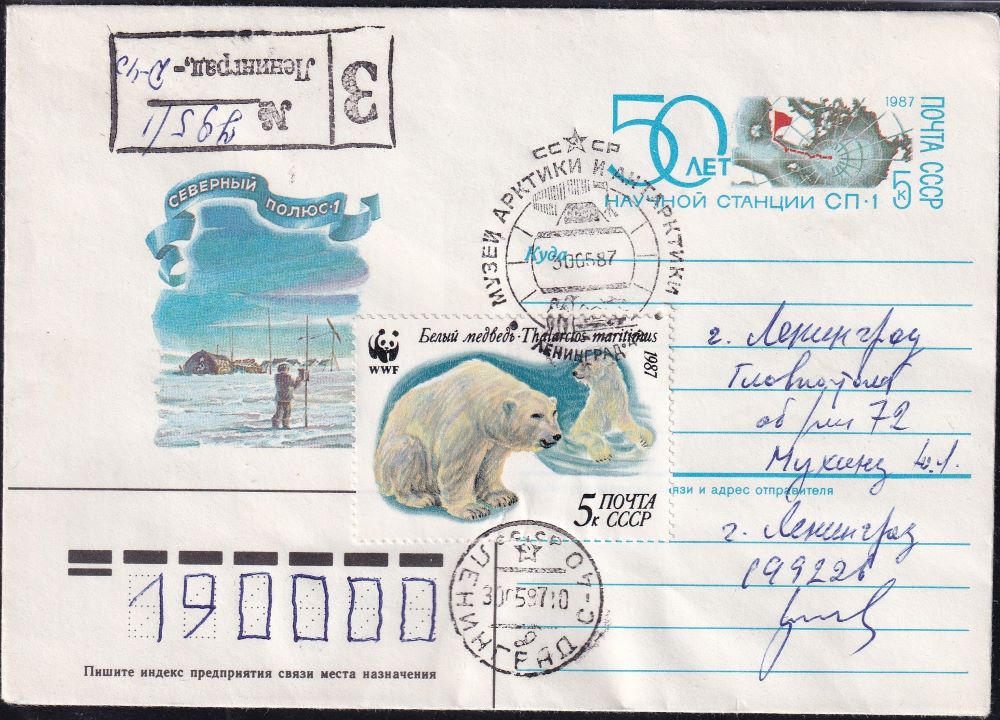 З
Ленинград,-
№
СЕВЕРНЫЙ
ПОЛЮС·1
50
ЛЕТ
1987
ПОЧТА СССР
5к
НАУЧНОЙ СТАНЦИИ СП·1
СССР
МУЗЕЙ АРКТИКИ И АНТАРКТИКИ
300587
ЛЕНИНГРАД
Куда
WWF
Белый медведь·Thalarctos maritimus
1987
5к ПОЧТА
СССР
г. Ленинград
Главпочтамт
72
Мухину Ю.Л.
связи и адрес отправителя
г. Ленинград
199226
СССР
ЛЕНИНГРАД С-40
300587
190000
Пишите индекс предприятия связи места назначения